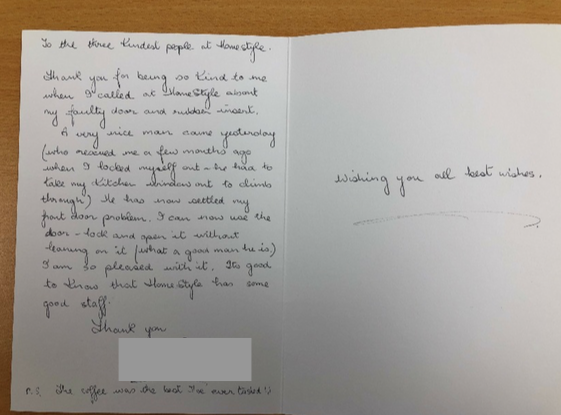 To the three Kindest people at Homestyle.
Thank you for being so Kind to me
when I called at HomeStyle about
my faulty door and rubber insert.
A very nice man came yesterday
(who rescued me a few months ago
when I locked myself out - he had to
take my Kitchen window out to climb
through) He has now settled my
front door problem. I can now use the
door - lock and open it without
leaning on it (what a good man he is)
I am so pleased with it. Its good
to Know that HomeStyle has some
good staff.
Thank you
P.S. The coffee was the best I've ever tasted!)
Wishing you all best wishes.